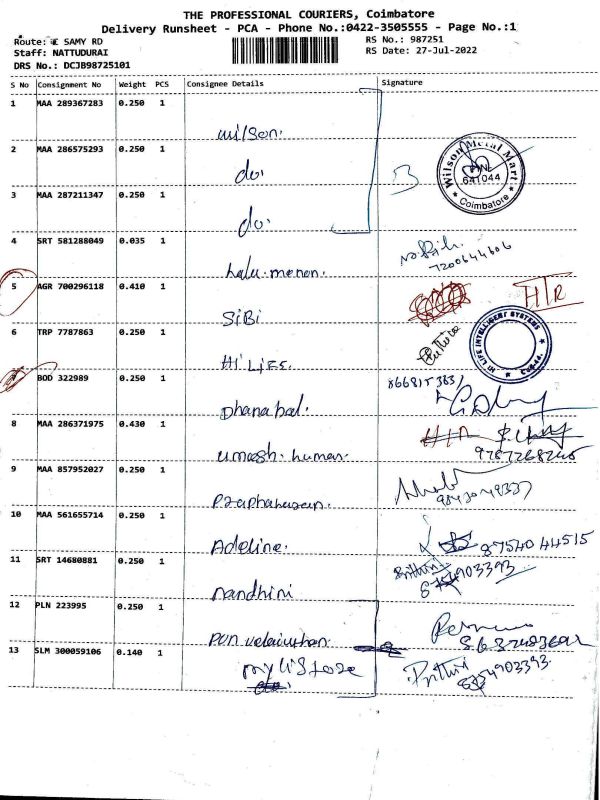 THE PROFESSIONAL COURIERS, Coimbatore
Delivery Runsheet - PCA - Phone No.:0422-3505555 - Page No.:1
Route: SAMY RD
RS No.: 987251
Staff: NATTUDURAI
RS Date: 27-Jul-2022
DRS No.: DCJB98725101
S No Consignment No Weight PCS Consignee Details Signature
1 MAA 289367283 0.250 1
wilson.
2 MAA 286575293 0.250 1
do.
Wilson Metal Mart
641044
Coimbatore
3 MAA 287211347 0.250 1
do.
4 SRT 581288049 0.035 1
lalu.menon.
7200644606
5 AGR 700296118 0.410 1
SiBi
HIR
6 TRP 7787863 0.250 1
Hi LIFE.
HI LIFE INTELLIGENT SYSTEMS
BOD 322989 0.250 1
Dhanabal.
8 MAA 286371975 0.430 1
umesh. kumar.
9 MAA 857952027 0.250 1
10 MAA 561655714 0.250 1
Adeline.
87540 44515
11 SRT 14680881 0.250 1
nandhini
Prithvi
8754903393
12 PLN 223995 0.250 1
13 SLM 300059106 0.140 1
my listose
Prithvi
8754903393